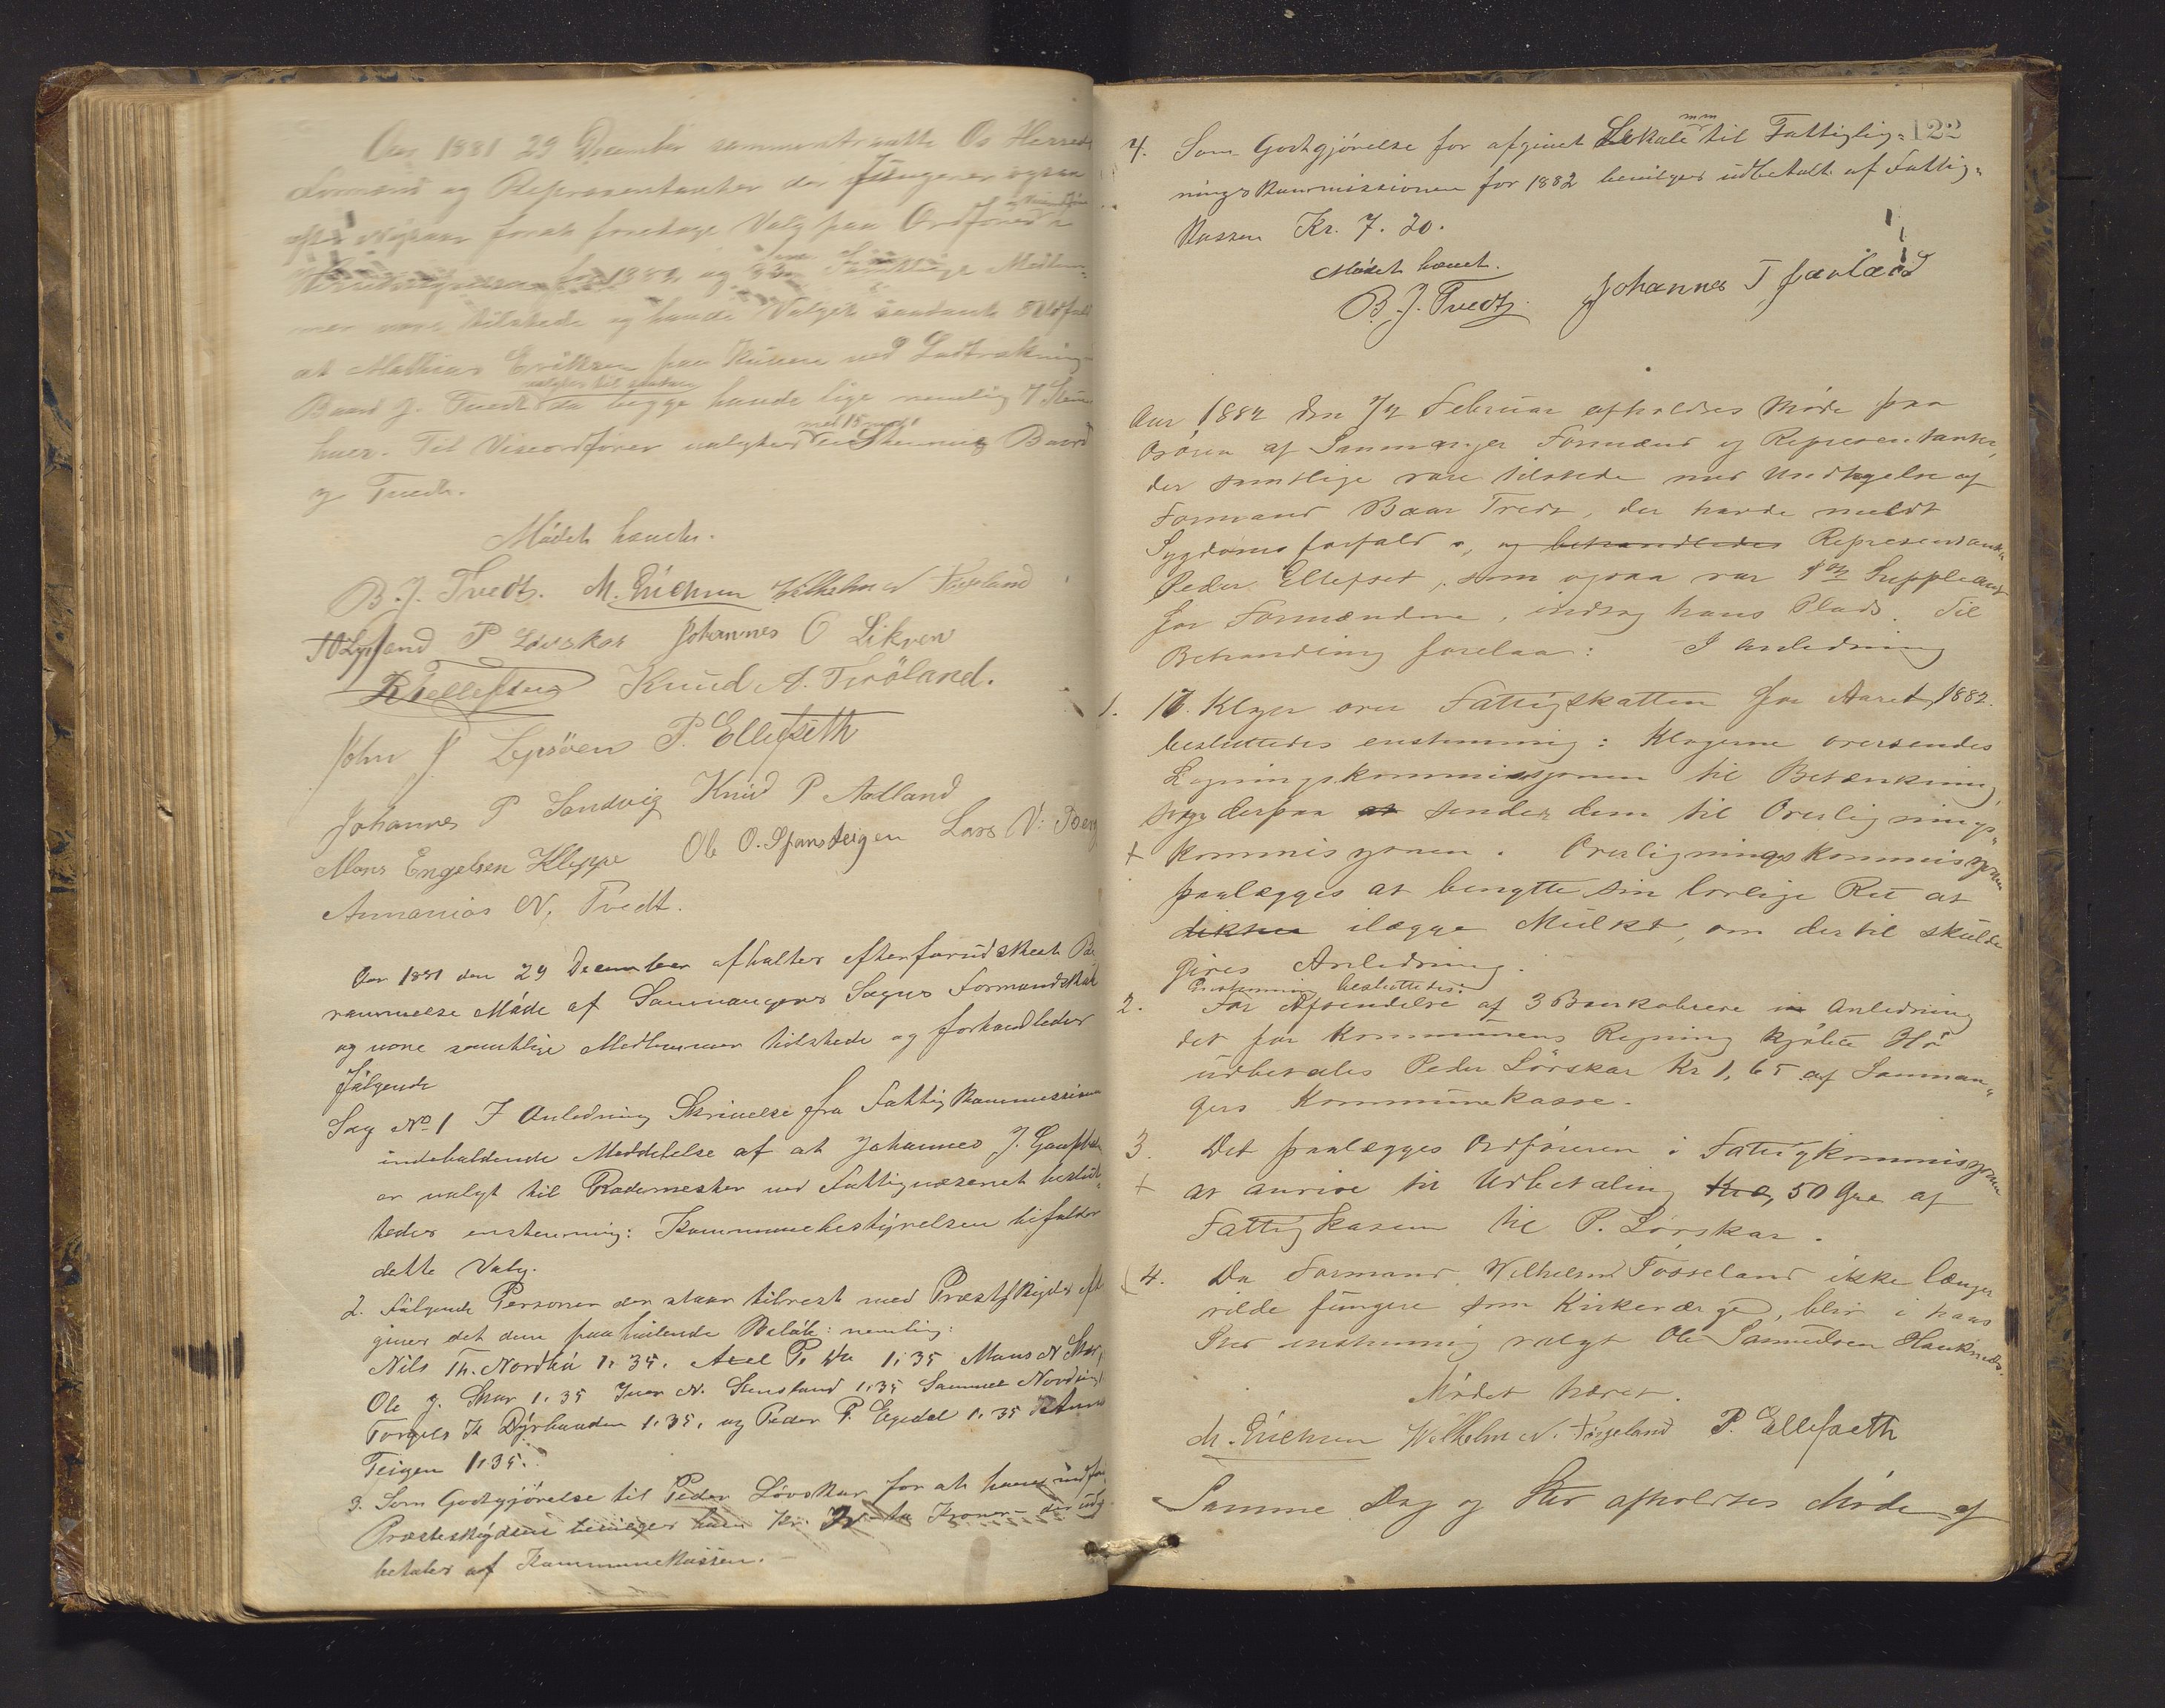 Aar 1881 29 December sammentraatte Os Herreds
Formænd og Repræsentanter der fungerer ogsaa
efter Nytaar forat foretage Valg paa Ordfører
for 1882, og Medlem-
mer vare tilstede og havde Valget saadant Udfald
at Mathias Eriksen ved Lodtrækning
valgtes til
Baard J. Tvedt da begge havde lige nemlig 7 Stem
hver. Til Viseordfører valgtes Baard
med 15
J. Tvedt.
Mødet hævet.
B. J. Tvedt. M. Erichsen Wilhelm N Tøsseland
P Løvskar Johannes O Likven
Knud A. Tirøland.
John J Lepsöen P. Ellefseth
Johannes P Sandvig Knud P Aadland
Mons Engelsen Kleppe Ole O. Lars N.
Annanias N. Tvedt.
Aar 1881 den 29 December afholtes efter forudskeet Be
rammelse Møde af Samnangers Sogns Formandskab
og vare samtlige Medlemmer tilstede og forhandledes
følgende
Sag No 1 I Anledning Skrivelse fra Fattigkommissionen
indeholdende Meddelelse af at Johannes J.
er valgt til Rodemester ved Fattigvæsenet beslut-
tedes enstemmig: Kommunebestyrelsen bifalder
dette Valg.
2. Følgende Personer der staar tilrest med Præstskyds eft
giver det dem paahvilende Beløb: nemlig:
Nils Th. Nordbø 1.35. Axel P. 1.35 Mons N
Ole J. Skar 1.35 Iver N. 1.35 Samuel
Torgils K Dyrhauden 1.35. og Peder P. Egedal 1.35
Teigen 1.35.
3. Som Godtgjørelse til Peder Løvskar for at have
Præsteskydsen bevilges ham Kr. 2 to Kroner der ud
betales af Kommunekassen.
122
4. Som Godtgjørelse for afgivet Lokale mm til Fattiglig-
ningskommissionen for 1882 bevilges udbetalt af Fattig-
kassen Kr. 7.20.
Mødet hævet.
B. J. Tvedt. Johannes T
Aar 1882 den 7/2 Februar afholdtes Møde paa
Osøren af Samnanger Formænd og Representanter,
der samtlige vare tilstede med Undtagelse af
Formand Baar Tvedt, der havde meldt
Sygdoms forfald, og behandledes Representant
Peder Ellefset, som ogsaa var 1ste Suppleant
for Formændene, indtog hans Plads. Til
Behandling forelaa: I anledning
1. 17 Klager over Fattigskatten for Aaret 1882.
besluttedes enstemmig: Klagerne oversendes
Ligningskommissjonen til Betænkning,
derpaa at sender dem til Overlignings-
+ kommissjonen. Overligningskommissjonen
paalægges at benytte sin lovlige Ret at
diktere ilægge Mulkt, om dertil skulde
gives Anledning.
Enstemmig besluttedes:
2. For Afsendelse af 3 Bankobreve in Anledning
det for Kommunens Regning kjøbte Hø
udbetales Peder Lövskar Kr 1,65 af Samnan-
gers Kommunekasse.
3. Det paalægges Ordføreren i Fattigkommissjonen
+ at anvise til Udbetaling 50 Øre af
Fattigkassen til P. Lövskar.
4. Da Formand Wilhelm Tösseland ikke længer
vilde fungere som Kirkeværge, blev i hans
Sted enstemmig valgt Ole Samuelsen Hauknæs.
Mødet hævet.
M. Erichsen Wilhelm N. Tøsseland P. Ellefseth
Samme Dag og Sted afholdtes Møde af